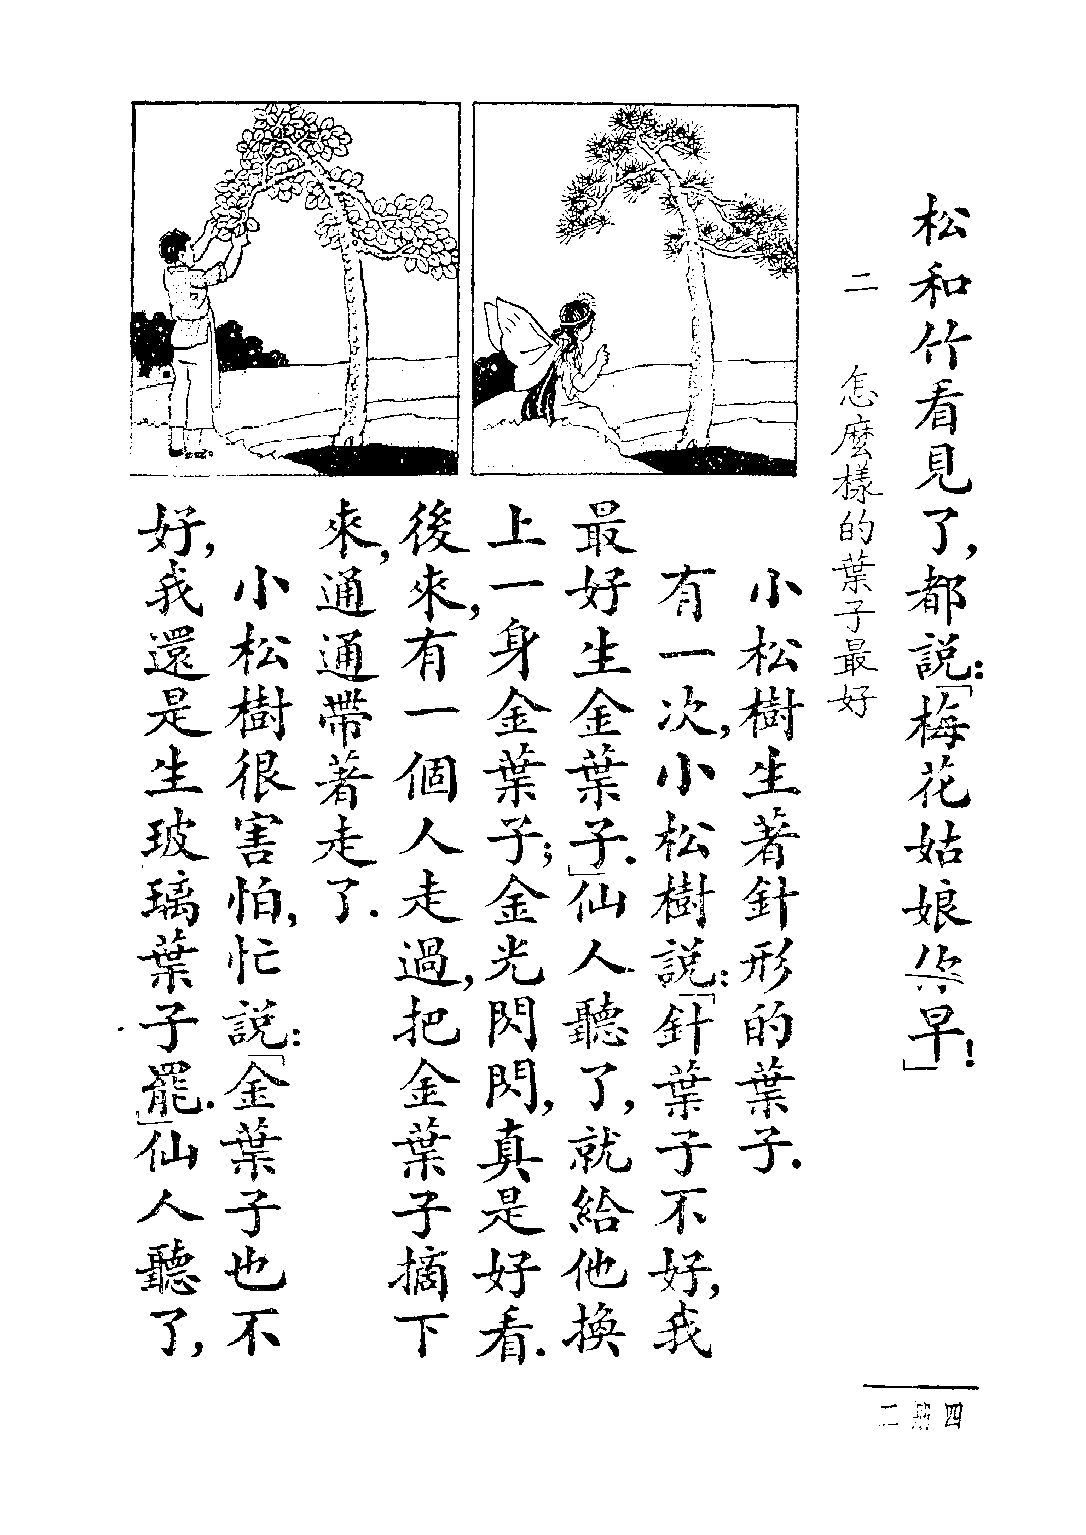 松和竹看見了,都說:「梅花姑娘你早!」
二 怎麼樣的葉子最好
小松樹生著針形的葉子.
有一次,小松樹說:「針葉子不好,我
最好生金葉子.」仙人聽了,就給他換
上一身金葉子;金光閃閃,真是好看.
後來,有一個人走過,把金葉子摘下
來,通通帶著走了.
小松樹很害怕,忙說:「金葉子也不
好,我還是生玻璃葉子罷.」仙人聽了,
四冊二